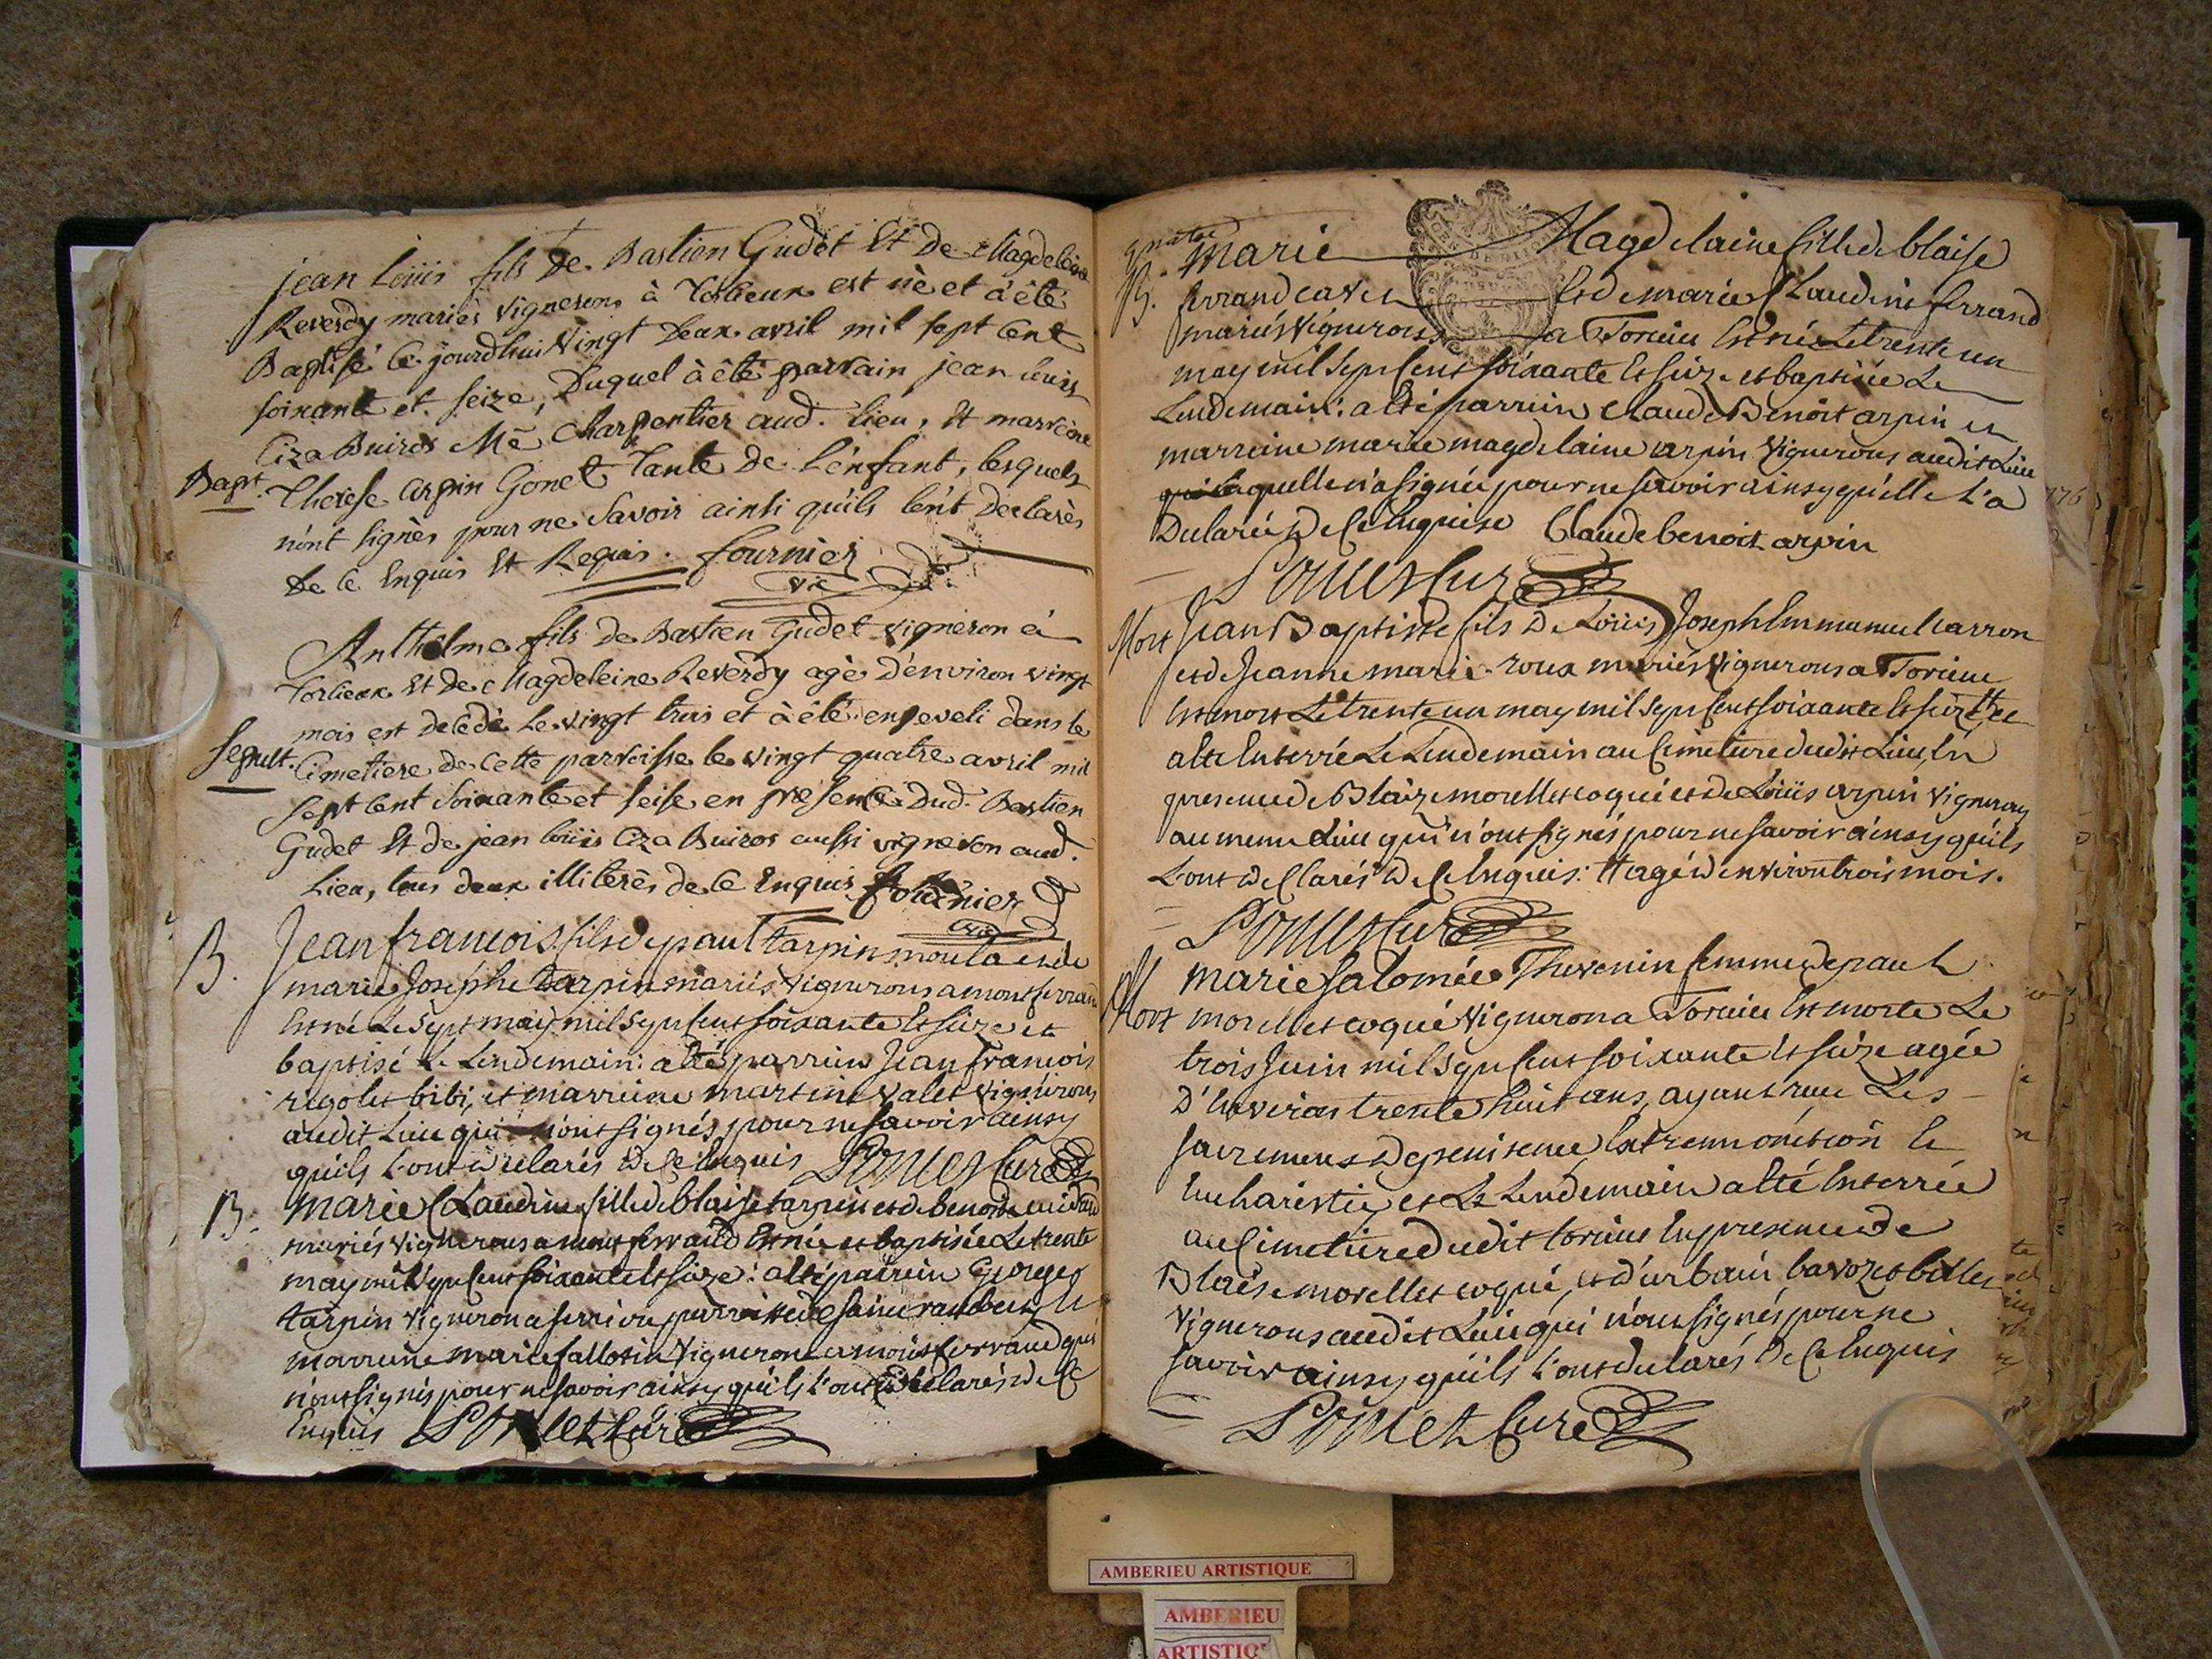 jean loüis fils de Bastien Gudet Et de Magdeleine
Reverdy mariès vignerons à Torlieux est nè et à étè
Baptisé Ce jourdhui vingt deux avril mil sept Cent
soixante et seize, Duquel à été parrain jean loüis
Ciza Buiros Mē Charpentier aud. lieu, Et marreine
Bapt. Therèse arpin Gonet Tante de l'enfant, lesquels
n'ont signès pour ne savoir ainsi quils l'ont declarès
de ce Enquis Et Requis. fournier
vic
Anthelme fils de Bastien Gudet vigneron à
Torlieux Et de Magdeleine Reverdy agè d'environ vingt
mois est decedè le vingt trois et à été enseveli dans le
Sepult. Cimetiere de Cette parroisse le vingt quatre avril mil
sept Cent soixante et seise en presence Dud. Bastien
Gudet Et de jean loüis Ciza Buiros aussi vigneron aud.
Lieu, tous deux illiterès de Ce Enquis fournier
vic
B. Jean francois fils de paul tarpin moula et de
marie Josephe tarpin mariés vignerons a montferrand
Est né Le sept may mil sept Cent soixante Et seize et
baptisé Le Lendemain: a été parrein Jean francois
rigolet bibi, et marreine martine valet vignerons
audit Lieu qui n'ont signés pour ne savoir ainsy
quils L'ont declarés de Ce Enquis Curé
B. Marie Claudine fille de blaise tarpin et de benoite
mariés vignerons a montferrand Est née et baptisée Le trente
may mil sept Cent soixante Et seize: a été parrein Georges
tarpin vigneron a parroisse de saint rambert, Et
marreine marie vigneronne a montferrand qui
n'ont signés pour ne savoir ainsy quils L'ont declarés de Ce
Enquis Curé
quatre
Marie Magdelaine fille de blaise
B. ferrand cavet Et de marie Claudine ferrand
mariés vignerons a Torcieu Est née Le trente un
may mil sept Cent soixante Et seize et baptisée Le
Lendemain: a été parrein Claude Benoit arpin et
marreine marie magdelaine arpin vignerons audit Lieu
laquelle n'a signée pour ne savoir ainsy qu'elle L'a
Declarée de Ce Enquise Claude benoit arpin
Curé
Mort Jean Baptiste fils De Loüis Joseph Emmanuel carron
et de Jeanne marie roux mariés vignerons a Torcieu
Est mort Le trente un may mil sept Cent soixante Et seize # Et
a été Enterré Le Lendemain au Cimetiere dudit Lieu, En
presence de Blaize morellet coqué et de Loüis arpin vignerons
au meme Lieu qui n'ont signés pour ne savoir ainsy quils
L'ont declarés de Ce Enquis: # agé d'environ trois mois.
Curé
Marie Salomée Thevenin femme de paul
Mort morellet coqué vigneron a Torcieu Est morte Le
trois Juin mil sept Cent soixante Et seize agée
D'Environ trente huit ans, ayant recu Les
sacremens De penitence, Extreme onction Et
Eucharistie, et Le Lendemain a été Enterrée
au Cimetiere dudit torcieu En presence de
Blaise morellet coqué, et d'urbain bavozet billet
vignerons audit Lieu qui n'ont signés pour ne
savoir ainsy quils L'ont declarés De Ce Enquis
Curé
AMBERIEU ARTISTIQUE
AMBERIEU
ARTISTIQ